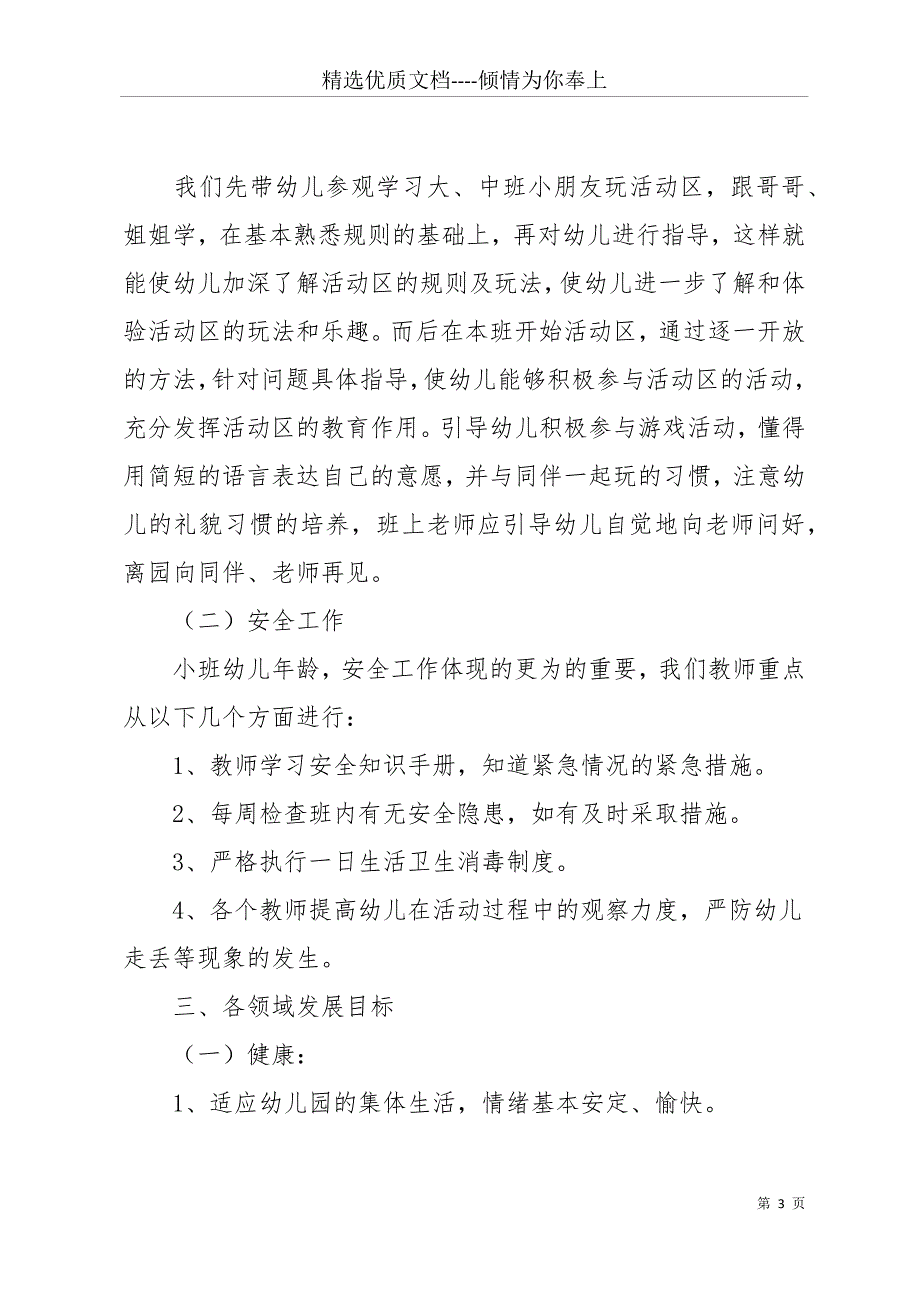 精选优质文档----倾情为你奉上
我们先带幼儿参观学习大、中班小朋友玩活动区，跟哥哥、
姐姐学，在基本熟悉规则的基础上，再对幼儿进行指导，这样就
能使幼儿加深了解活动区的规则及玩法，使幼儿进一步了解和体
验活动区的玩法和乐趣。而后在本班开始活动区，通过逐一开放
的方法，针对问题具体指导，使幼儿能够积极参与活动区的活动，
充分发挥活动区的教育作用。引导幼儿积极参与游戏活动，懂得
用简短的语言表达自己的意愿，并与同伴一起玩的习惯，注意幼
儿的礼貌习惯的培养，班上老师应引导幼儿自觉地向老师问好，
离园向同伴、老师再见。
（二）安全工作
小班幼儿年龄，安全工作体现的更为的重要，我们教师重点
从以下几个方面进行：
1、教师学习安全知识手册，知道紧急情况的紧急措施。
2、每周检查班内有无安全隐患，如有及时采取措施。
3、严格执行一日生活卫生消毒制度。
4、各个教师提高幼儿在活动过程中的观察力度，严防幼儿
走丢等现象的发生。
三、各领域发展目标
（一）健康：
1、适应幼儿园的集体生活，情绪基本安定、愉快。
第 3 页